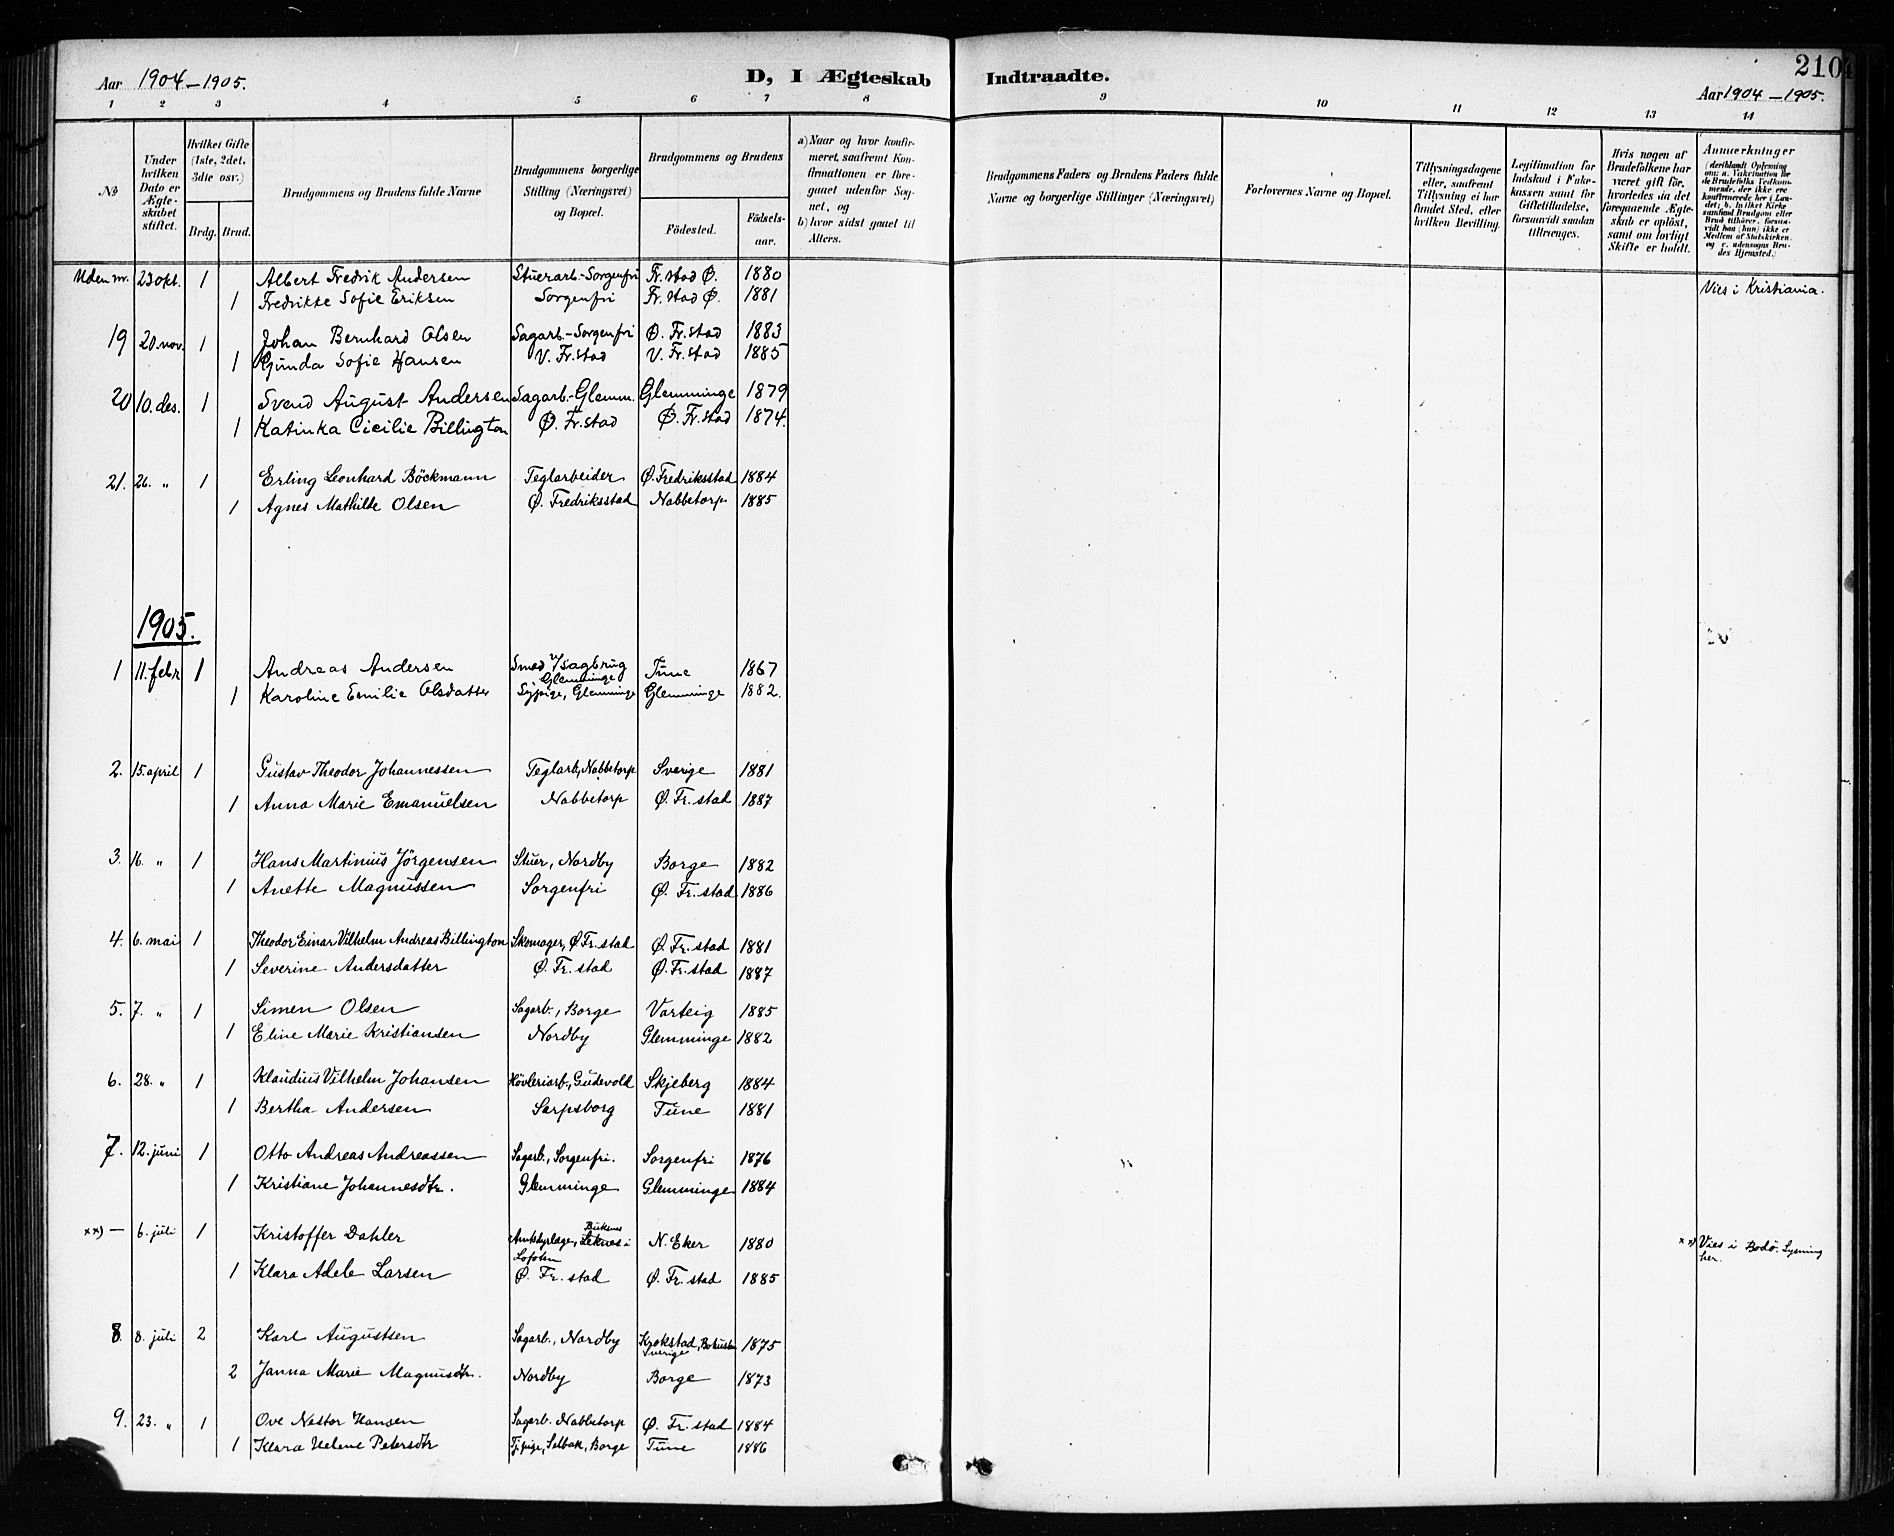 Aar 1904–1905.
D, I Ægteskab
Indtraadte.
210
Aar 1904–1905.
1 2 3 4 5 6 7 8 9 10 11 12 13 14
No
Under hvilken Dato er Ægteskabet stiftet.
Hvilket Gifte (1ste, 2det, 3die osv.)
Brdg. Brud.
Brudgommens og Brudens fulde Navne
Brudgommens borgerlige Stilling (Næringsvei) og Bopæl.
Brudgommens og Brudens
Fødested.
Fødsels-aar.
a) Naar og hvor konfirmeret, saafremt Konfirmationen er foregaaet udenfor Sognet, og
b) hvor sidst gaaet til Alters.
Brudgommens Faders og Brudens Faders fulde Navne og borgerlige Stillinger (Næringsvei)
Forlovernes Navne og Bopæl.
Tillysningsdagene eller, saafremt Tillysning ei har fundet Sted, efter hvilken Bevilling.
Legitimation for Indskud i Enkekassen samt for Giftetilladelse, forsaavidt saadan tiltrænges.
Hvis nogen af Brudefolkene har været gift før, hvorledes da det foregaaende Ægteskab er opløst, samt om lovligt Skifte er holdt.
Anmærkninger
(deriblandt Oplysning om: a. Vaccination for de Brudefolks Vedkommende, der ikke ere konfirmerede her i Landet; b. hvilket Kirkesamfund Brudgom eller Brud tilhører, forsaavidt han (hun) ikke er Medlem af Statskirken, og c. udensogns Brudes Hjemsted.)
Uden nr. 23 okt. 1 Albert Fredrik Andersen Stuerarb.-Sorgenfri Fr.stad Ø. 1880
1 Fredrikke Sofie Eriksen Sorgenfri Fr.stad Ø. 1881 Vies i Kristiania.
19 20. nov. 1 Johan Bernhard Olsen Sagarb.-Sorgenfri Ø. Fr.stad 1883
1 Gunda Sofie Hansen V. Fr.stad V. Fr.stad 1885
20 10. des. 1 Svend August Andersen Sagarb.-Glemm. Glemminge 1879
1 Katinka Cicilie Billington Ø. Fr.stad Ø. Fr.stad 1874.
21. 26. „ 1 Erling Leonhard Böckmann Teglarbeider Ø. Fredriksstad 1884
1 Agnes Mathilde Olsen Ø. Fredriksstad Nabbetorp 1885
1905.
1 11. febr 1 Andreas Andersen Smed v/sagbrug Tune 1867
Glemminge
1 Karoline Emilie Olsdatter Sypige, Glemminge Glemminge 1882.
2. 15. april 1 Gustav Theodor Johannessen Teglarb., Nabbetorp Sverige 1881
1 Anna Marie Emanuelsen Nabbetorp Ø. Fr. stad 1887
3. 16. „ 1 Hans Martinius Jörgensen Stuer, Nordby Borge 1882
1 Anette Magnussen Sorgenfri Ø. Fr. stad 1886
4. 6. mai 1 Theodor Einar Vilhelm Andreas Billington Skomager, Ø Fr. stad Ø. Fr. stad 1881
1 Severine Andersdatter Ø. Fr. stad Ø. Fr. stad 1887
5. 7. „ 1 Simen Olsen Sagarb., Borge Varteig 1885
1 Eline Marie Kristiansen Nordby Glemminge 1882
6. 28. „ 1 Klaudius Vilhelm Johansen Hövleriarb., Gudevold Skjeberg 1884
1 Bertha Andersen Sarpsborg Tune 1881
7. 12. juni 1 Otto Andreas Andreassen Sagarb., Sorgenfri. Sorgenfri 1876
1 Kristiane Johannesdtr. Glemminge Glemminge 1884
xx) — 6. juli 1 Kristoffer Dahler Leknes i N. Eker 1880 xx) Vies i Bodö. Lysning her.
Buksnes
Lofoten
1 Klara Adele Larsen Ø. Fr. stad Ø. Fr. stad 1885
8. 8. juli 2 Karl Augustsen Sagarb., Nordby Krokstad, 1875
Sverige
2 Janna Marie Magnusdtr. Nordby Borge 1873
9. 23. „ 1 Ove Nestor Hansen Sagarb. Nabbetorp Ø. Fr. stad 1884
1 Klara Helene Petersdtr Tj.pige, Selbak, Borge Tune 1886